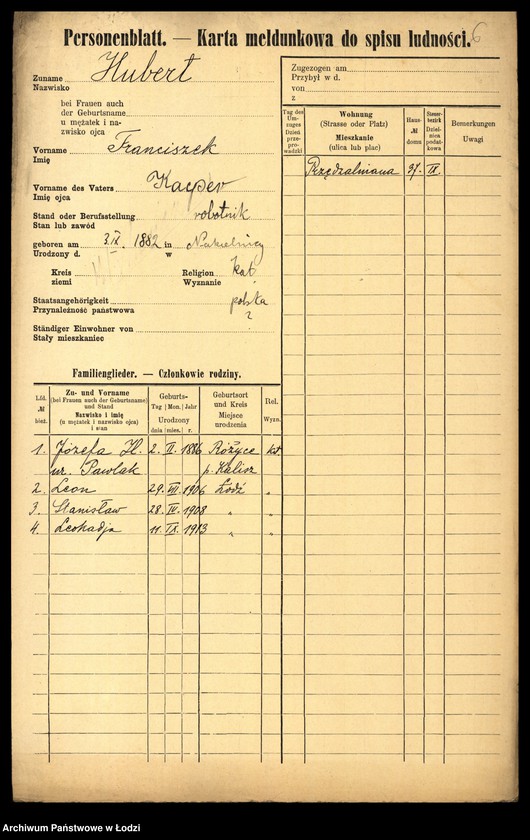 Personenblatt. — Karta meldunkowa do spisu ludności. 6
Zuname Hubert
Nazwisko
bei Frauen auch
der Geburtsname
u mężatek i na-
zwisko ojca
Vorname Franciszek
Imię
Vorname des Vaters Kacper
Imię ojca
Stand oder Berufsstellung robotnik
Stan lub zawód
geboren am 3.IX. 1882 in
Urodzony d. w
Kreis Religion kat.
ziemi Wyznanie
Staatsangehörigkeit polska
Przynależność państwowa ?
Ständiger Einwohner von
Stały mieszkaniec
Zugezogen am
Przybył w d.
von
z
Tag des Um-zuges Dzień prze-prowadzki
Wohnung (Strasse oder Platz) Mieszkanie (ulica lub plac)
Haus- № domu
Steuer-bezirk Dziel-nica podat-kowa
Bemerkungen Uwagi
Przędzalniana 37. IX.
Familienglieder. — Członkowie rodziny.
Lfd. № bież.
Zu- und Vorname (bei Frauen auch der Geburtsname) und Stand Nazwisko i imię (u mężatek i nazwisko ojca) i stan
Geburts- Tag Mon. Jahr Urodzony dnia mies. r.
Geburtsort und Kreis Miejsce urodzenia
Rel. Wyzn.
1. Józefa H. 2. II. 1886 Różyce kat
ur. Pawlak p. Kalisz
2. Leon 29. VII. 1906 Łódź „
3. Stanisław 28. IV. 1908 „ „
4. Leokadja 11. IX. 1913 „ „
Archiwum Państwowe w Łodzi